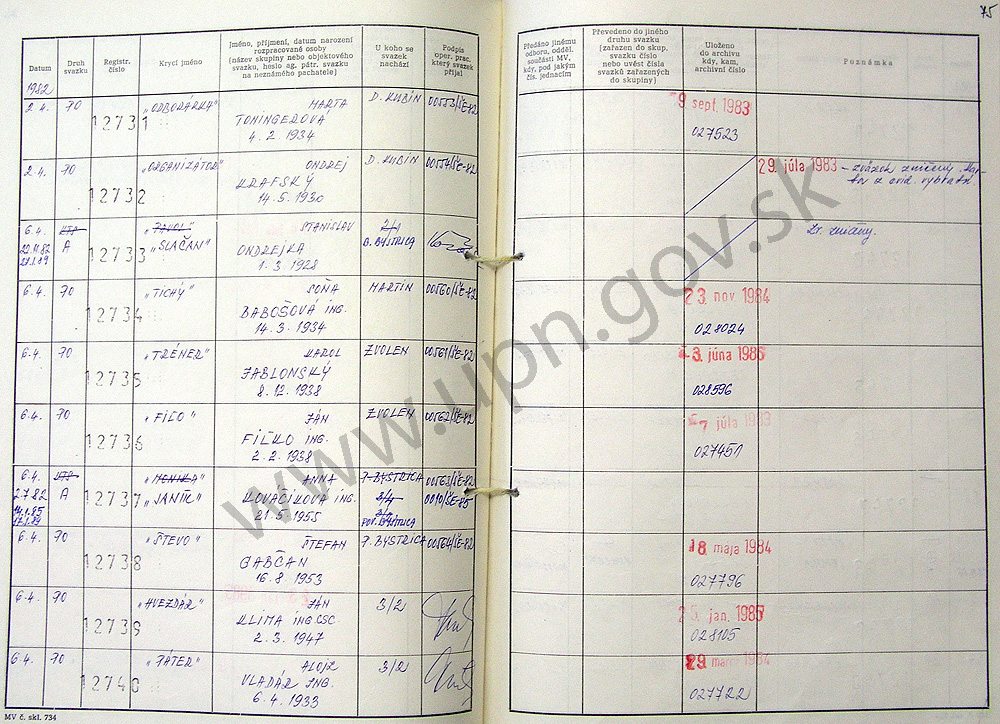 75
Datum
Druh svazku
Registr. číslo
Krycí jméno
Jméno, příjmení, datum narození
rozpracované osoby
(název skupiny nebo objektového
svazku, heslo ag. pátr. svazku
na neznámého pachatele)
U koho se
svazek
nachází
Podpis
oper. prac.
který svazek
přijal
Předáno jinému
odboru, odděl.
součásti MV,
kdy, pod jakým
čís. jednacím
Převedeno do jiného
druhu svazku
(zařazen do skup.
svazku číslo
nebo uvést čísla
svazků zařazených
do skupiny)
Uloženo
do archivu
kdy, kam,
archivní číslo
Poznámka
1982
2.4. 70 12731 "ODBORÁRKA" MARTA D. KUBÍN 00553/ŠE-82 9 sept 1983
TONINGEROVÁ
4. 2. 1934 027523
2.4. 70 12732 "ORGANIZÁTOR" ONDREJ D. KUBÍN 00554/ŠE-82 29. júla 1983 - zväzok zničený
KRAFSKÝ
14. 5. 1930
6.4. KTS 12733 "PAVOL" STANISLAV 2/1
A "SLAČAN" ONDREJKA B. BYSTRICA
1. 3. 1928
6.4. 70 12734 "TICHÝ" SOŇA MARTIN 00560/ŠE-82 23. nov. 1984
BABOŠOVÁ ING.
14. 3. 1934 028024
6.4. 70 12735 "TRÉNER" KAROL ZVOLEN 00561/ŠE-82 3. júna 1986
JABLONSKÝ
8. 12. 1938 028596
6.4. 70 12736 "FIĽO" JÁN ZVOLEN 00562/ŠE-82 7 júla 1983
FIĽKO ING.
2. 2. 1938 027451
6.4. KTS 12737 "MONIKA" ANNA P. BYSTRICA 00563/ŠE-82
2.7.82 A "JANIK" KOVÁČIKOVÁ ING. 0010/ŠE-85
14.1.85 21. 5. 1955 POV. BYSTRICA
6.4. 70 12738 "ŠTEVO" ŠTEFAN P. BYSTRICA 00564/ŠE-82 18 mája 1984
GABČAN
16. 8. 1953 027796
6.4. 70 12739 "HVEZDÁR" JÁN 3/2 jan. 1985
KLIMA ING. CSC.
2. 3. 1947 028105
6.4. 70 12740 "PÁTER" ALOJZ 3/2 29 marca 1984
VLADÁR ING.
6. 4. 1933 027722
MV č. skl. 734
www.upn.gov.sk